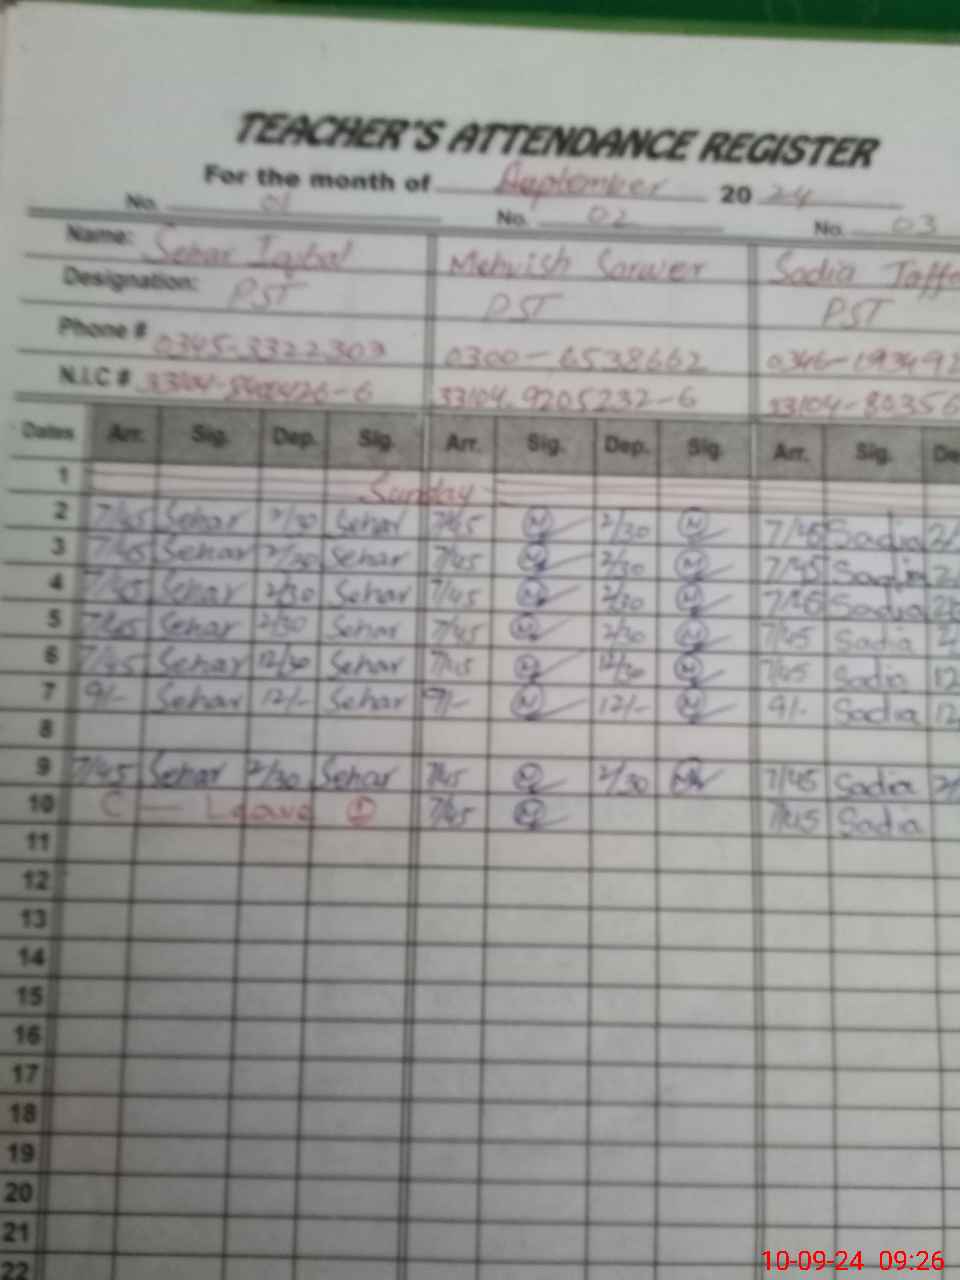 TEACHER'S ATTENDANCE REGISTER
For the month of September 2024
No. 01 No. 02 No. 03
Name: Sehar Iqbal Mehvish Sarwer Sadia
Designation: PST PST PST
Phone # 0345-3322303 0300-6538662 0346-193492
N.I.C # 33104-9205232-6 33104-80356
Dates Arr. Sig. Dep. Sig. Arr. Sig. Dep. Sig. Arr. Sig.
1 Sunday
2 7/45 Sehar 2/30 Sehar 7/45 M 2/30 M 7/45 Sadia
3 7/45 Sehar 2/30 Sehar 7/45 M 2/30 M 7/45 Sadia
4 7/45 Sehar 2/30 Sehar 7/45 M 2/30 M 7/45 Sadia
5 7/45 Sehar 2/30 Sehar 7/45 M 2/30 M 7/45 Sadia
6 7/45 Sehar 12/30 Sehar 7/45 M 12/30 M 7/45 Sadia 12
7 9/- Sehar 12/- Sehar 9/- M 12/- M 9/- Sadia 12
8
9 7/45 Sehar 2/30 Sehar 7/45 M 2/30 M 7/45 Sadia
10 C — Leave 1 7/45 M 7/45 Sadia
11
12
13
14
15
16
17
18
19
20
21
22
10-09-24 09:26